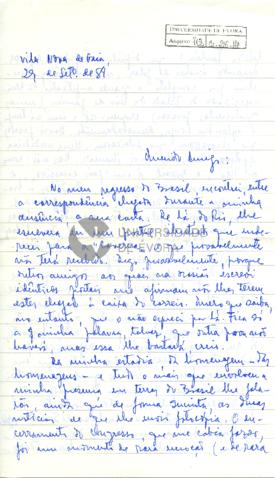 UNIVERSIDADE DE ÉVORA
Arquivo
Vila Nova de Gaia,
29 de Set. de 89
Querido Amigo:
No meu regresso do Brasil, encontrei, entre
a correspondência chegada durante a minha
ausência, a sua carta. De lá, do Rio, lhe
escrevera um que
para provavelmente
não terá recebido. Digo provavelmente, porque
outros amigos aos quais na ocasião escrevi
idênticos postais me afirmam não lhes terem
estes chegado à caixa do correio. Quero que saiba,
no entanto, que o não esqueci por lá. Fica só
a minha palavra, talvez, que outra prova não
haverá, mas essa lhe bastará, creio.
UNIVERSIDADE
DE ÉVORA
Da minha estadia, da homenagem - das
homenagens - e tudo o mais que envolveu a
minha presença em terras do Brasil lhe
ainda que de forma sucinta, as
notícias de que lhe envio fotocópia. O en-
cerramento do Congresso, que me cabia fazer,
foi um momento de rara emoção (e de rara